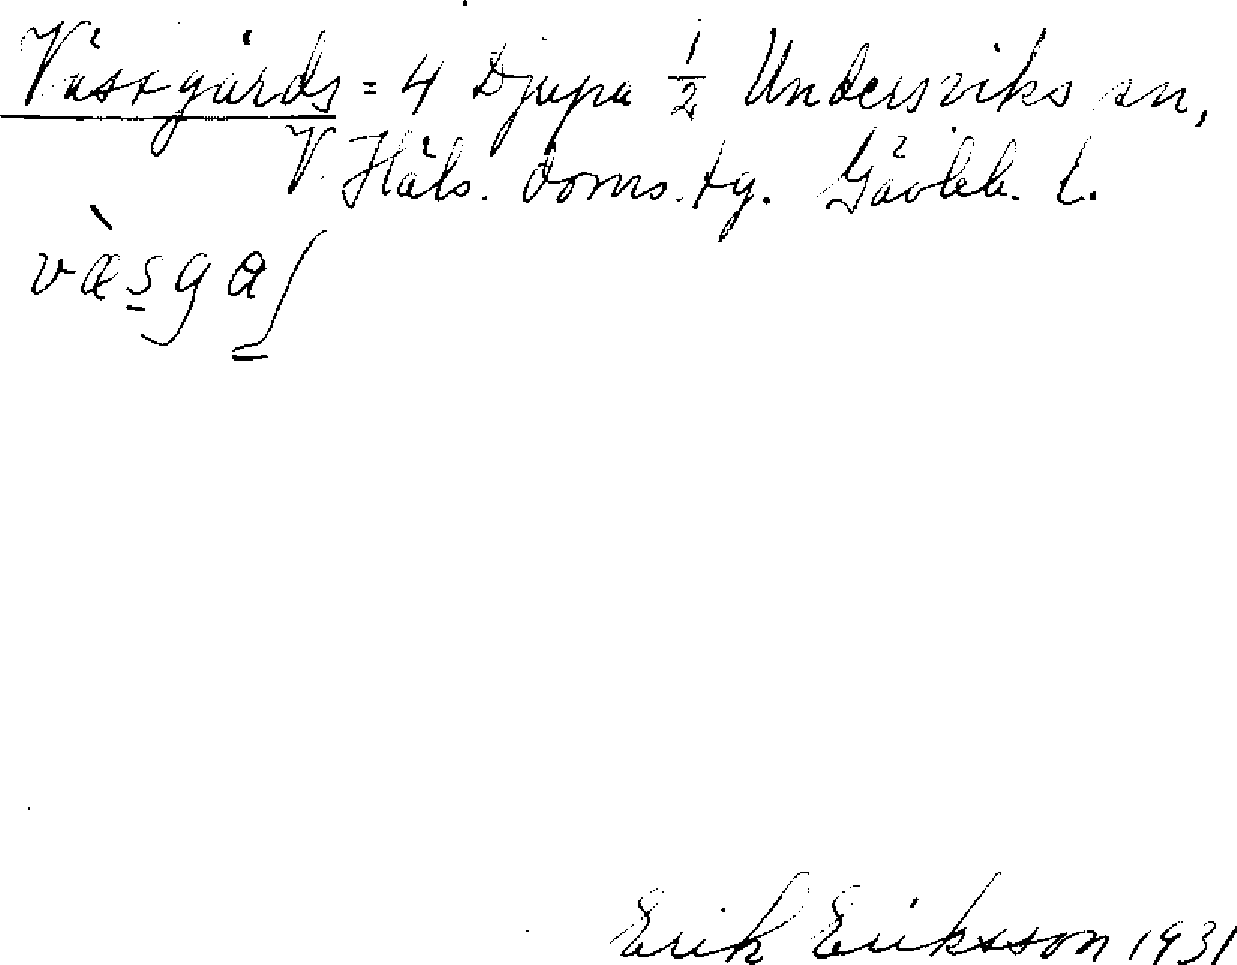 Västgårds = 4 Djupa 1/2 Undersviks sn,
V. Häls. doms. tg. Gävleb. l.
væ̀s̲gaʃ̲
Erik Eriksson 1931